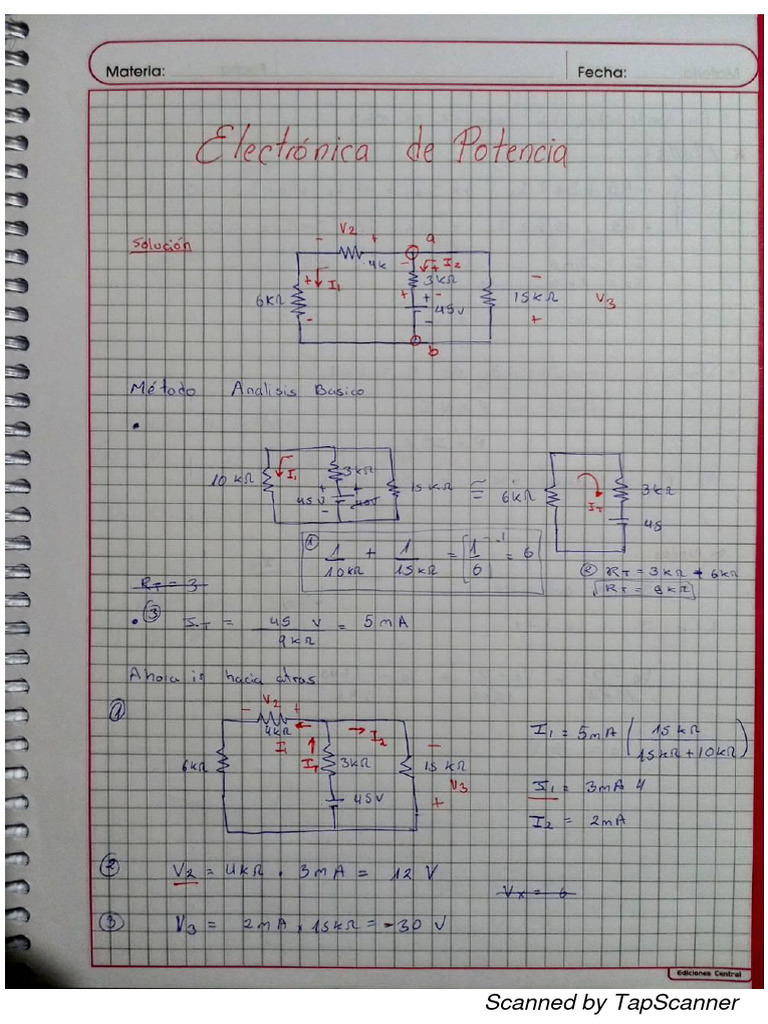 Materia:
Fecha:
Electrónica de Potencia
Solución
V2
- +
a
4k
-
+ I1
6KΩ
-
I2
3KΩ
+ + -
45v
-
-
15KΩ V3
+
b
Método Analisis Basico
10 KΩ
I1
3KΩ
+ +
45 V
-
15 KΩ
≅
6KΩ
IT
3KΩ
45
① 1/10KΩ + 1/15KΩ = [1/6]⁻¹ = 6
② RT = 3KΩ + 6KΩ
RT = 9KΩ
RT = 3
• ③ IT = 45 V / 9KΩ = 5mA
Ahora ir hacia atras
①
- V2 +
4KΩ
I1
I2
6KΩ
IT
3KΩ
45V
-
15 KΩ
V3
+
I1 = 5mA (15KΩ / 15KΩ+10KΩ)
I1 = 3mA
I2 = 2mA
② V2 = 4KΩ . 3mA = 12 V
Vx = 6
③ V3 = 2mA x 15KΩ = -30 V
Ediciones Central
Scanned by TapScanner